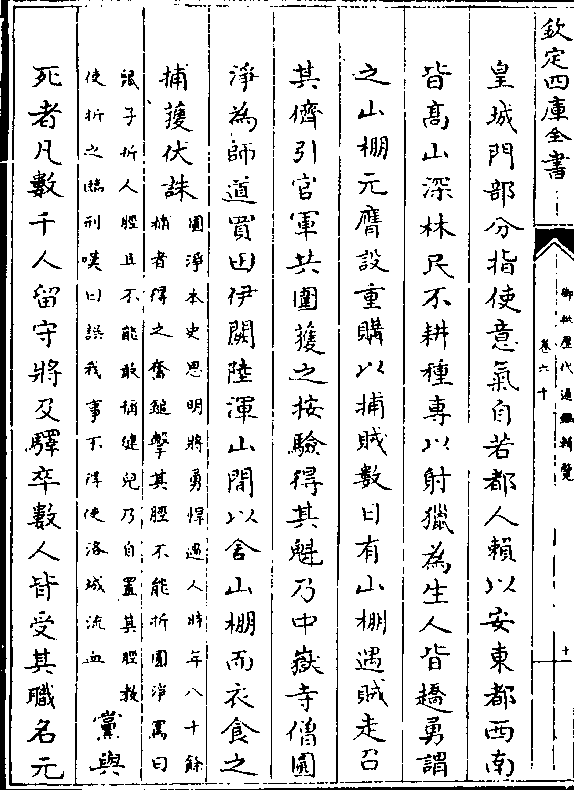 欽定四庫全書
御批歷代通鑑輯覽
卷六十
十
皇城門部分指使意氣自若都人賴以安東都西南
皆髙山深林民不耕種專以射獵為生人皆趫勇謂
之山棚元膺設重購以捕賊數日有山棚遇賊走召
其儕引官軍共圍獲之按驗得其魁乃中嶽寺僧圓
淨為師道買田伊闕陸渾山間以舍山棚而衣食之
捕獲伏誅
圓淨本史思明將勇悍過人時年八十餘
捕者得之奮鎚擊其脛不能折圓淨罵曰
鼠子折人脛且不能敢稱健兒乃自置其脛教
使折之臨刑嘆曰誤我事不得使洛城流血
黨與
死者凡數千人留守將及驛卒數人皆受其職名元